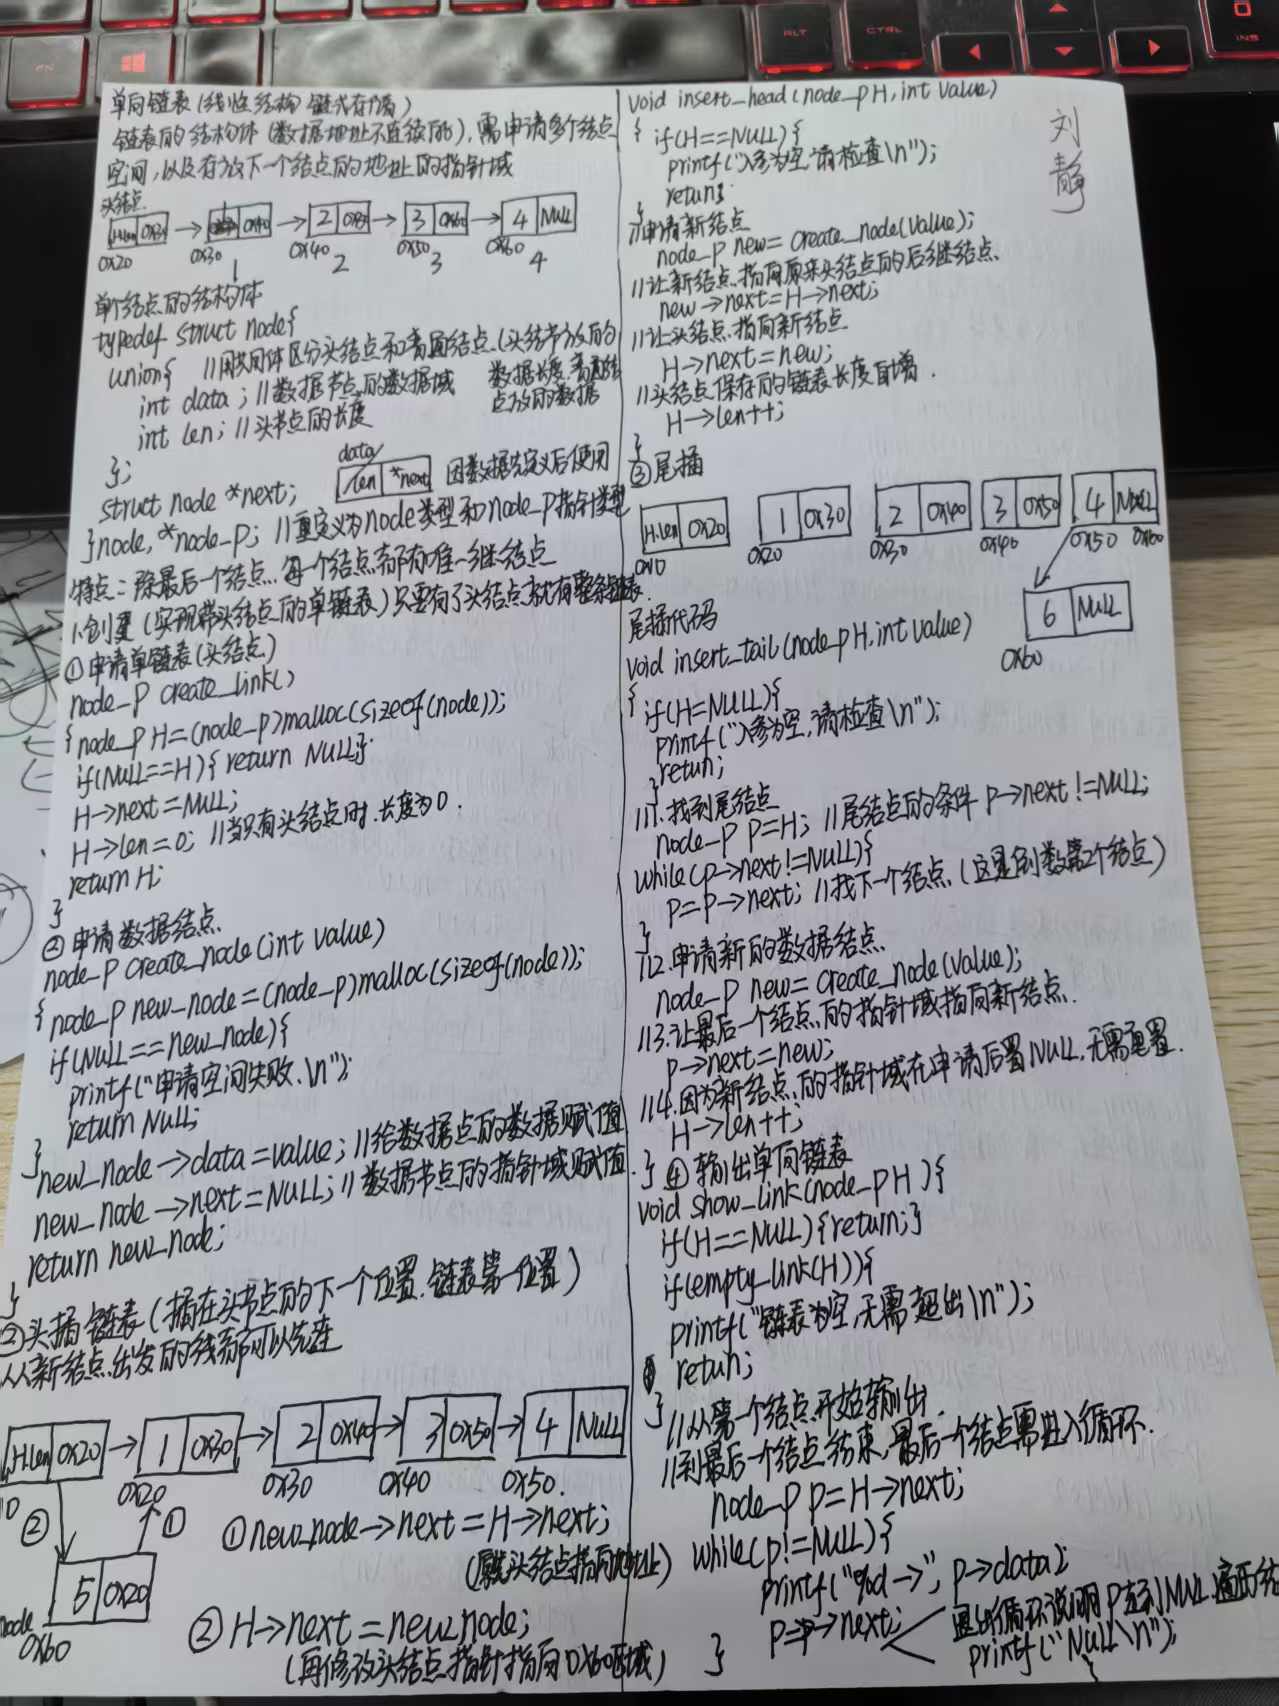 单向链表(线性结构 链式存储)
链表的结构体(数据地址不连续的),需申请多个结点
空间,以及存放下一个结点的地址的指针域
头结点
H.len 0x30 → 0x40 → 2 0x50 → 3 0x60 → 4 NULL
0x20 0x30 0x40 0x50 0x60
1 2 3 4
单个结点的结构体
typedef struct node{
union{ //用共用体区分头结点和普通结点(头结点放的
int data; //数据节点的数据域 数据长度,普通结
int len; //头节点的长度 点放的数据
};
data
len *next 因数据先定义后使用
struct node *next;
}node,*node_p; //重定义为node类型和node_p指针类型
特点:除最后一个结点,每一个结点都有唯一继结点
1.创建(实现带头结点的单链表)只要有了头结点就有整条链表.
①申请单链表(头结点)
node_p create_link()
{node_p H=(node_p)malloc(sizeof(node));
if(NULL==H){return NULL};
H->next=NULL;
H->len=0; //当只有头结点时.长度为0.
return H;
}
②申请数据结点
node_p create_node(int value)
{node_p new_node=(node_p)malloc(sizeof(node));
if(NULL==new_node){
printf("申请空间失败.\n");
return NULL;
}
new_node->data=value; //给数据点的数据赋值
new_node->next=NULL; //数据节点的指针域赋值.
return new_node;
}
②头插链表(插在头节点的下一个位置.链表第一位置)
从新结点出发的线都可以先连
H.len 0x20 → 1 0x30 → 2 0x40 → 3 0x50 → 4 NULL
0x20 0x30 0x40 0x50.
② ① ①new_node->next=H->next;
5 0x20
node
0x60
②H->next=new_node;
(再修改头结点指针指向0x60区域)
void insert_head(node_p H,int value)
刘静
{ if(H==NULL){
printf("入参为空,请检查\n");
retung
}
//申请新结点
node_p new=create_node(value);
//让新结点指向原来头结点的后继结点
new->next=H->next;
//让头结点指向新结点
H->next=new;
//头结点保存的链表长度自增.
H->len++;
}
③尾插
H.len 0x20 1 0x30 2 0x40 3 0x50 4 NULL
0x10 0x20 0x30 0x40 0x50 0x60
6 NULL
0x60
尾插代码
void insert_tail(node_p H,int value)
{ if(H=NULL){
printf("入参为空,请检查\n");
retun;
}
//1.找到尾结点
node_p p=H; //尾结点的条件 p->next!=NULL;
while(p->next!=NULL){
p=p->next; //找下一个结点(这是倒数第2个结点)
}
//2.申请新的数据结点
node_p new=create_node(value);
//3.让最后一个结点的指针域指向新结点.
p->next=new;
//4.因为新结点的指针域在申请后置NULL,无需重置.
H->len++;
}
④输出单向链表
void show_link(node_p H){
if(H==NULL){return;}
if(empty_link(H)){
printf("链表为空,无需输出\n");
retun;
}
//从第一个结点开始输出.
//到最后一个结点结束,最后一个结点需进入循环.
node_p p=H->next;
while(p!=NULL){
printf("%d->",p->data);
p=p->next;
退出循环说明p走到NULL遍历结
}
printf("NULL\n");
}